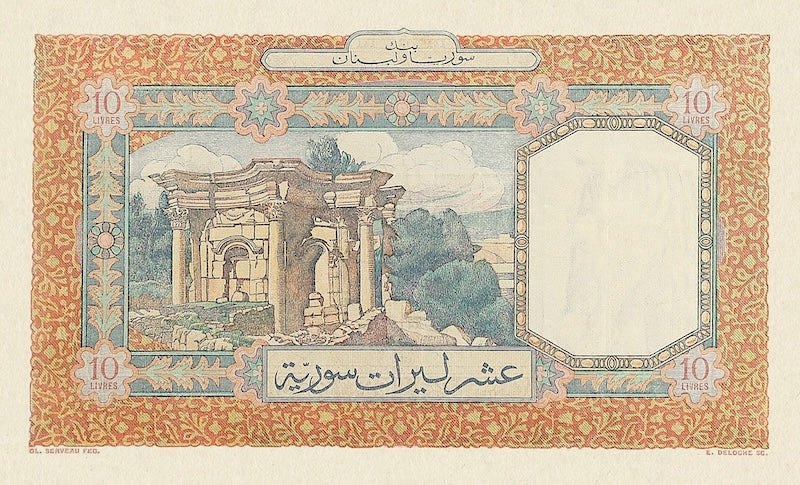 بنك
سوريا ولبنان
10
LIVRES
10
LIVRES
10
LIVRES
10
LIVRES
عشر ليرات سورية
CL. SERVEAU FEC.
E. DELOCHE SC.